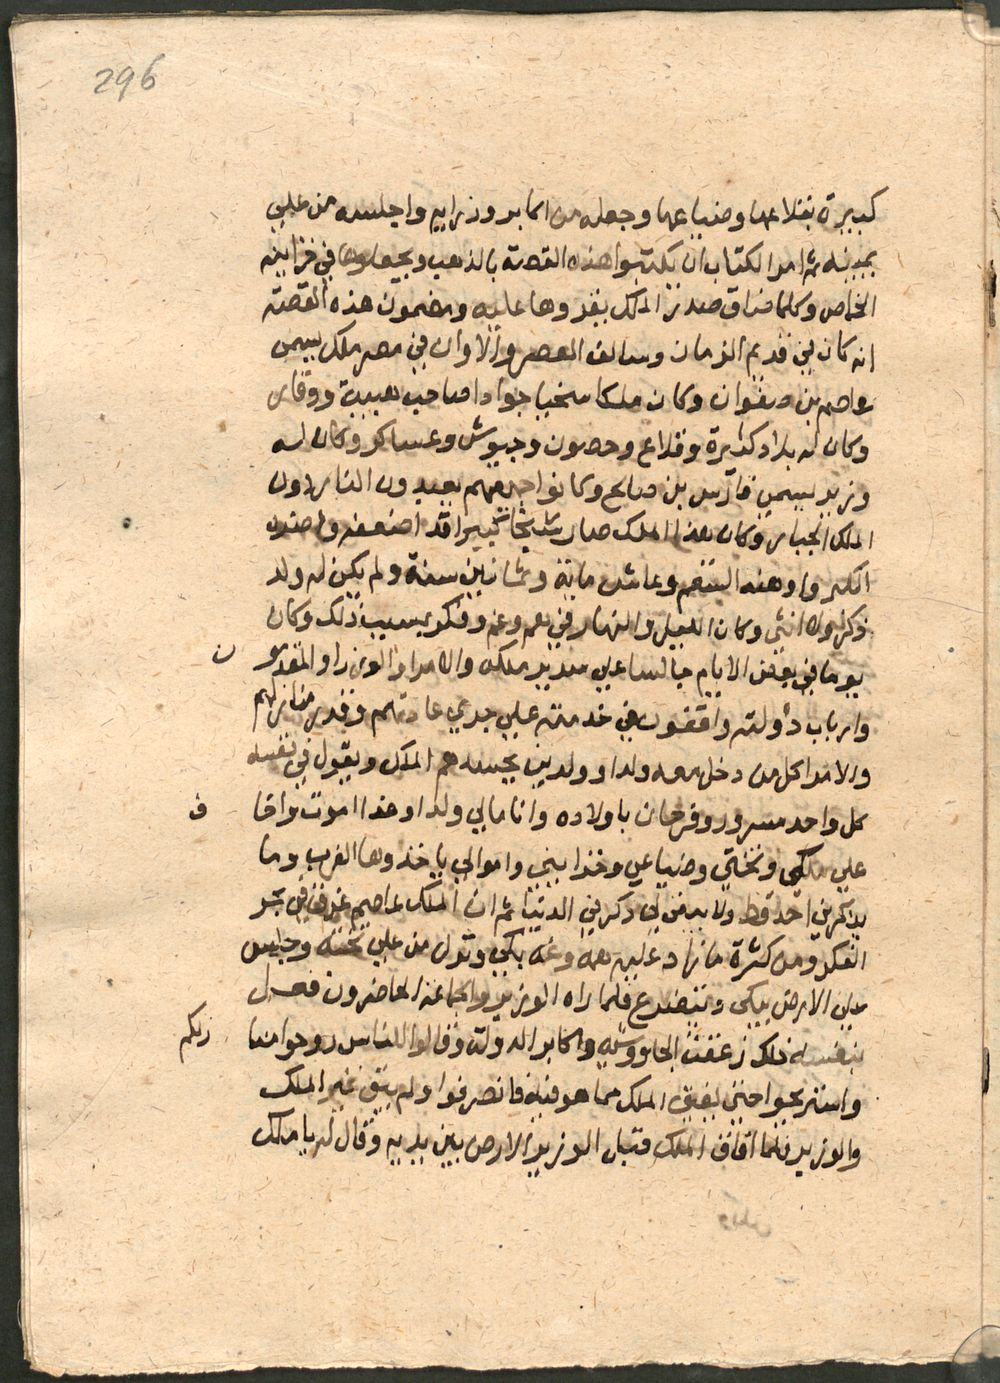 296
كبيرة بقلاعها وضياعها وجعله من اكابر وزرايه واجلسه من علي
يمينه ثم امر الكتاب ان يكتبوا هذه القصة بالذهب ويجعلوها في خزاينه
الخاص وكلما ضاق صدر الملك يقروها عليه ومضمون هذه القصة
انه كان في قديم الزمان وسالف العصر والاوان في مصر ملك يسمي
عاصم بن صفوان وكان ملكا سخيا جوادا صاحب هيبة ووقار
وكان له بلاد كثيرة وقلاع وحصون وجيوش وعساكر وكان له
وزير يسمي فارس بن صالح وكانوا جميعهم يعبدون النار دون
الملك الجبار وكان هذا الملك صار شيخا كبيرا قد اضعفه
الكبر واوهنه السقم وعاش ماية وثمانين سنة ولم يكن له ولد
ذكر ولا انثي وكان الليل والنهار في هم وغم وفكر بسبب ذلك وكان
يوما في بعض الايام جالسا علي سرير ملكه والامرا والوزرا والمقدمو ن
وارباب دولته واقفون في خدمته علي جري عادتهم وقدر منازلهم
والامرا كل من دخل معه ولد او ولدين يحسدهم الملك ويقول في نفسه
كل واحد مسرور وفرحان باولاده وانا مالي ولد او غدا اموت واخا ف
علي ملكي وتختي وضياعي وخزايني واموالي ياخذوها الغرب وما
يذكرني احد قط ولا يبقي لي ذكر في الدنيا ثم ان الملك عاصم غرق في بحر
الفكر ومن كثرة ما زاد عليه همه وغمه بكي ونزل من علي تخته وجلس
علي الارض يبكي ويتضرع فلما راه الوزير والجماعة الحاضرون فعل
بنفسه ذلك زعقت الجاووشيه واكابر الدولة وقالوا للناس روحوا منا زلكم
واستريحوا حتي يفيق الملك مما هو فيه فانصرفوا ولم يبق غير الملك
والوزير فلما افاق الملك قبل الوزير الارض بين يديه وقال له يا ملك